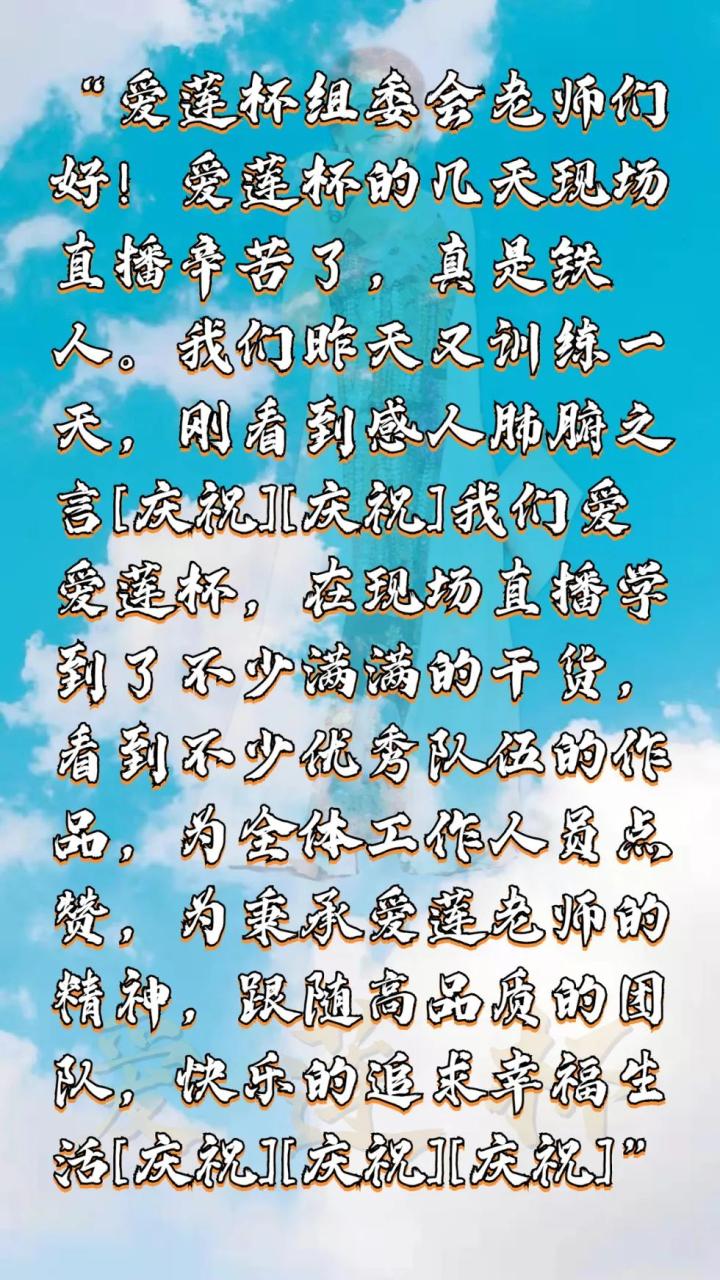 “爱莲杯组委会老师们
好！爱莲杯的几天现场
直播辛苦了，真是铁
人。我们昨天又训练一
天，刚看到感人肺腑之
言[庆祝][庆祝]我们爱
爱莲杯，在现场直播学
到了不少满满的干货，
看到不少优秀队伍的作
品，为全体工作人员点
赞，为秉承爱莲老师的
精神，跟随高品质的团
队，快乐的追求幸福生
活[庆祝][庆祝][庆祝]”
爱莲杯